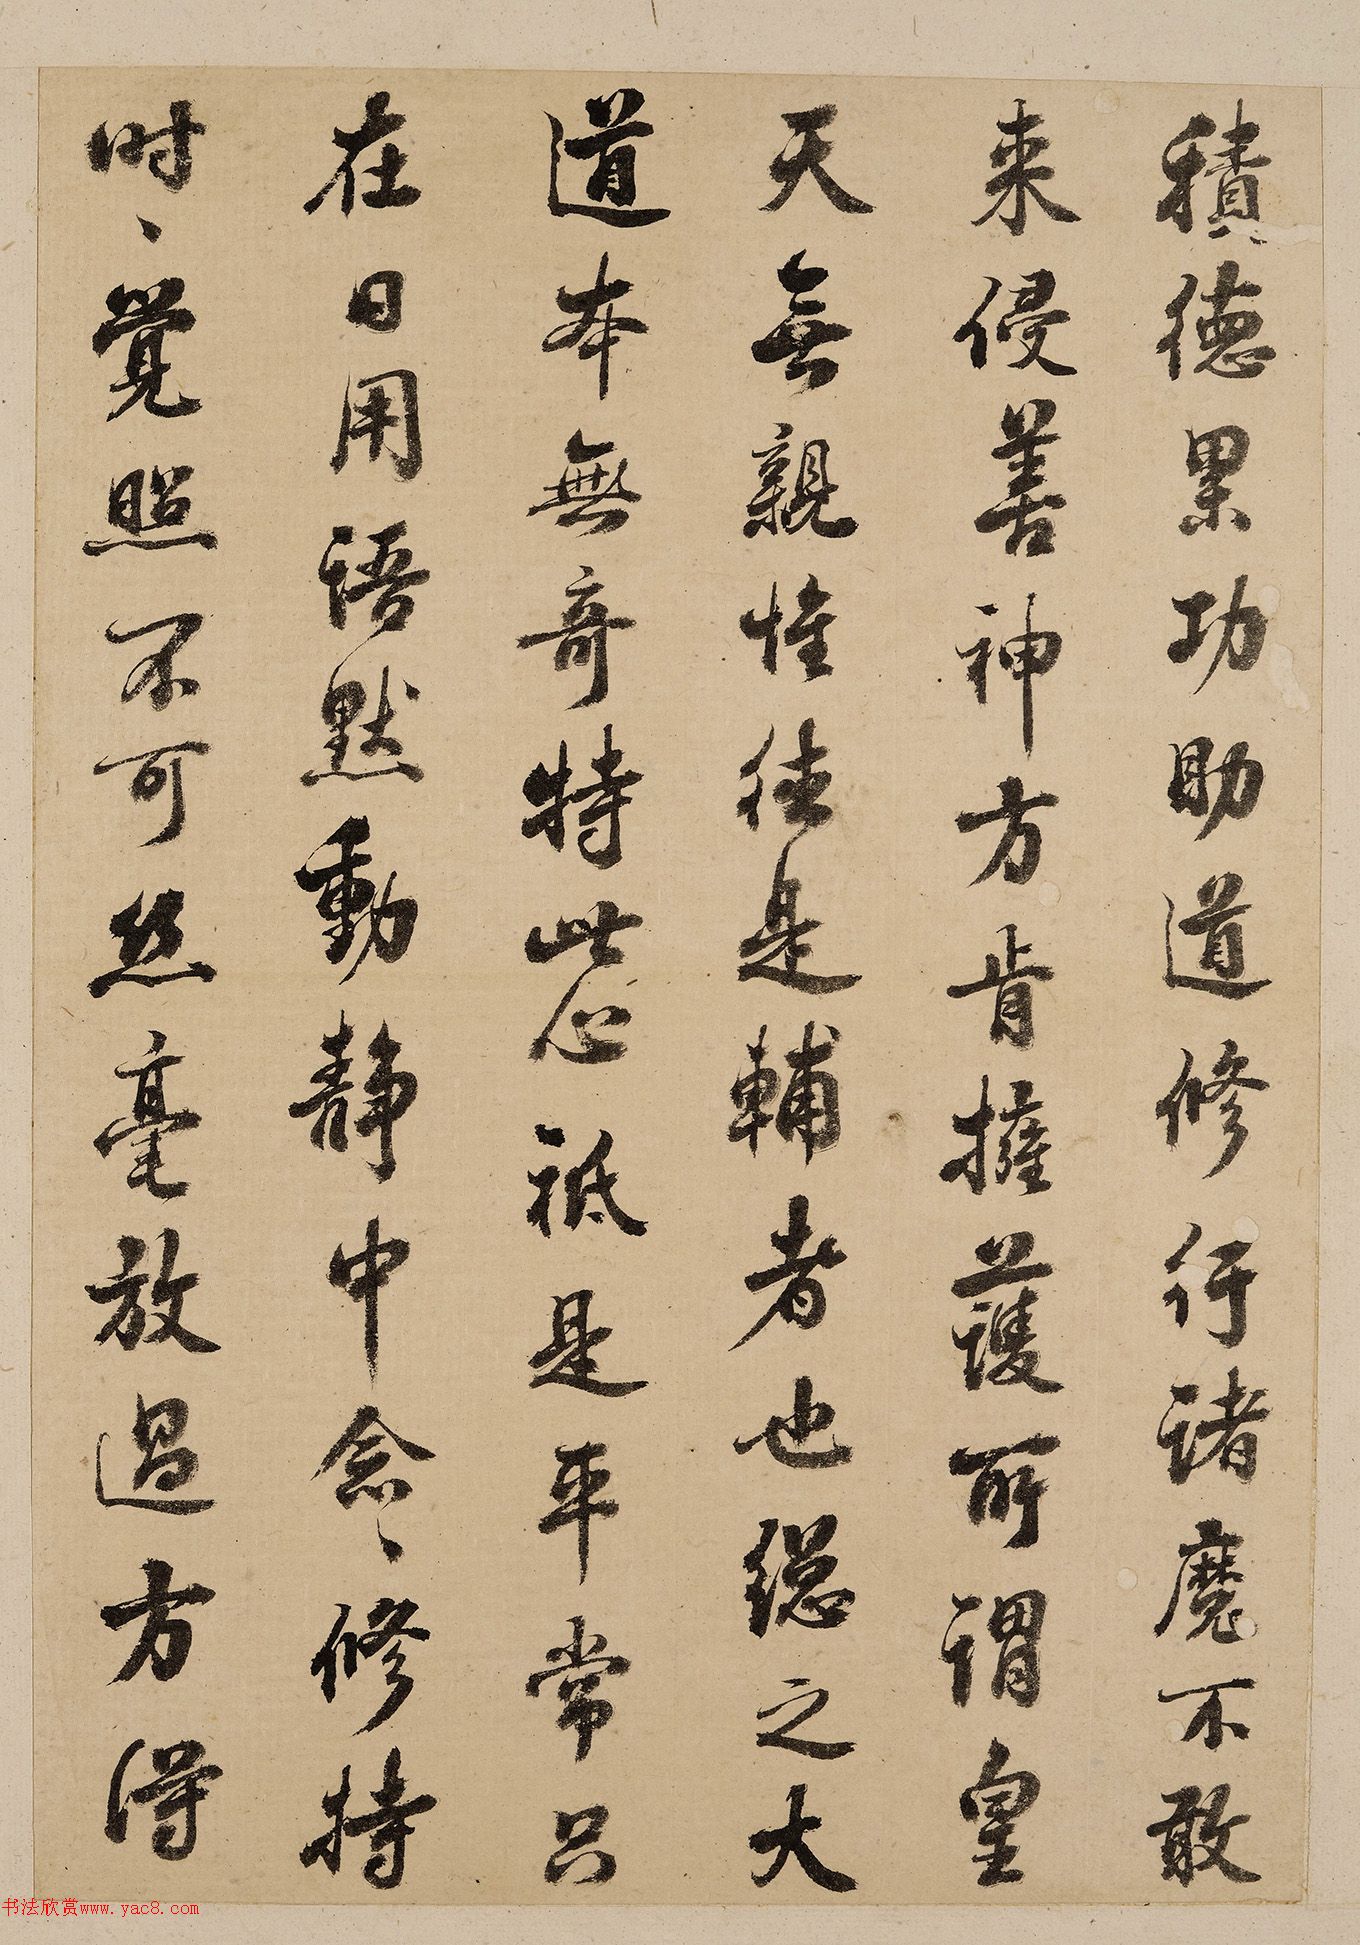 積德累功助道修行諸魔不敢
来侵善神方肯擁護所謂皇
天無親惟德是輔者也総之大
道本無奇特此心祗是平常只
在日用語默動静中念〻修持
时〻覺照不可丝毫放過方得
书法欣赏www.yac8.com